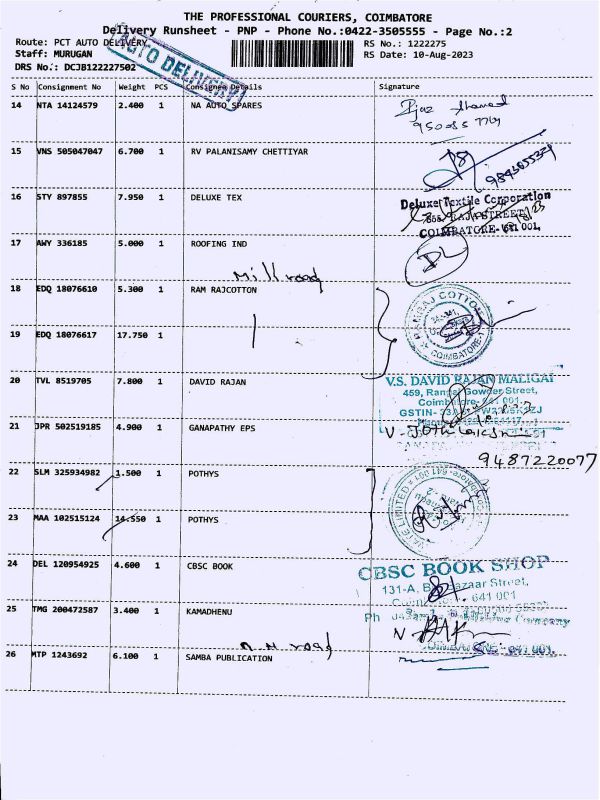 THE PROFESSIONAL COURIERS, COIMBATORE
Delivery Runsheet - PNP - Phone No.:0422-3505555 - Page No.:2
Route: PCT AUTO DELIVERY
RS No.: 1222275
Staff: MURUGAN
RS Date: 10-Aug-2023
DRS No.: DCJB122227502
AUTO DELIVERY
S No Consignment No Weight PCS Consignee Details Signature
14 NTA 14124579 2.400 1 NA AUTO SPARES
Ahamed
15 VNS 505047047 6.700 1 RV PALANISAMY CHETTIYAR
16 STY 897855 7.950 1 DELUXE TEX
Deluxe Textile Corporation
STREET
COIMBATORE-641 001.
17 AWY 336185 5.000 1 ROOFING IND
Mill road
18 EDQ 18076610 5.300 1 RAM RAJCOTTON
RAMRAJ COTTON
COIMBATORE-1
19 EDQ 18076617 17.750 1
20 TVL 8519705 7.800 1 DAVID RAJAN
V.S. DAVID RAJAN MALIGAI
459, Rangai Gowder Street,
GSTIN-
21 JPR 502519185 4.900 1 GANAPATHY EPS
9487220077
22 SLM 325934982 1.500 1 POTHYS
23 MAA 102515124 14.550 1 POTHYS
24 DEL 120954925 4.600 1 CBSC BOOK
CBSC BOOK SHOP
131-A, Street,
641 001
Ph
25 TMG 200472587 3.400 1 KAMADHENU
Company
COIMBATORE - 641 001.
N.H road
26 MTP 1243692 6.100 1 SAMBA PUBLICATION